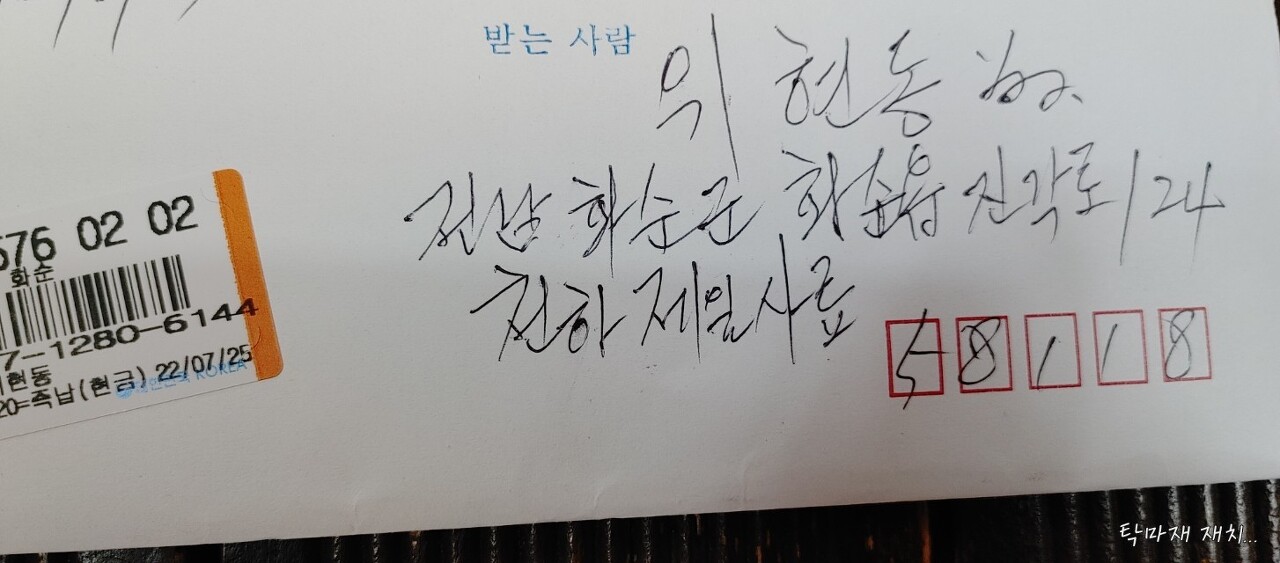 받는 사람
위 현동 님.
전남 화순군 화순읍 진각로 124
천하제일사료
58118
576 02 02
화순
7-1280-6144
현동
20=즉납(현금) 22/07/25
대한민국 KOREA
탁마재 재치...